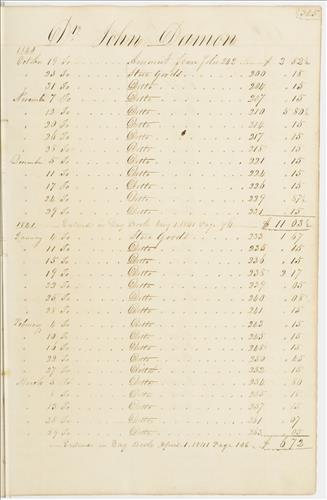 Dr John Damon
1840
October 19 To Amount from folio 242 $ 2 52½
" 23 To Store Goods 200 " 18
" 31 To Ditto 204 " 15
November 7 To Ditto 207 " 15
" 13 To Ditto 210 5 80½
" 20 To Ditto 214 " 15
" 26 To Ditto 217 " 15
" 28 To Ditto 218 " 15
December 5 To Ditto 221 " 15
" 11 To Ditto 224 " 15
" 17 To Ditto 226 " 15
" 24 To Ditto 229 " 87½
" 29 To Ditto 231 " 15
Entered in Day Book Jany 1. 1841 Page 94 $ 11 63½
1841
January 4 To Store Goods 233 1 67
" 11 To Ditto 235 " 15
" 15 To Ditto 236 " 15
" 19 To Ditto 238 2 17
" 23 To Ditto 239 " 05
" 25 To Ditto 240 " 08
" 28 To Ditto 241 " 15
February 4 To Ditto 243 " 15
" 10 To Ditto 245 " 15
" 16 To Ditto 248 " 15
" 22 To Ditto 250 " 45
" 27 To Ditto 252 " 15
March 3 To Ditto 254 " 80
To Ditto 255 " 18
" 13 To Ditto 257 " 15
To Ditto 261 " 07
" 29 To Ditto
Entered in Day Book April 1. 1841 Page 146 $ 6 72